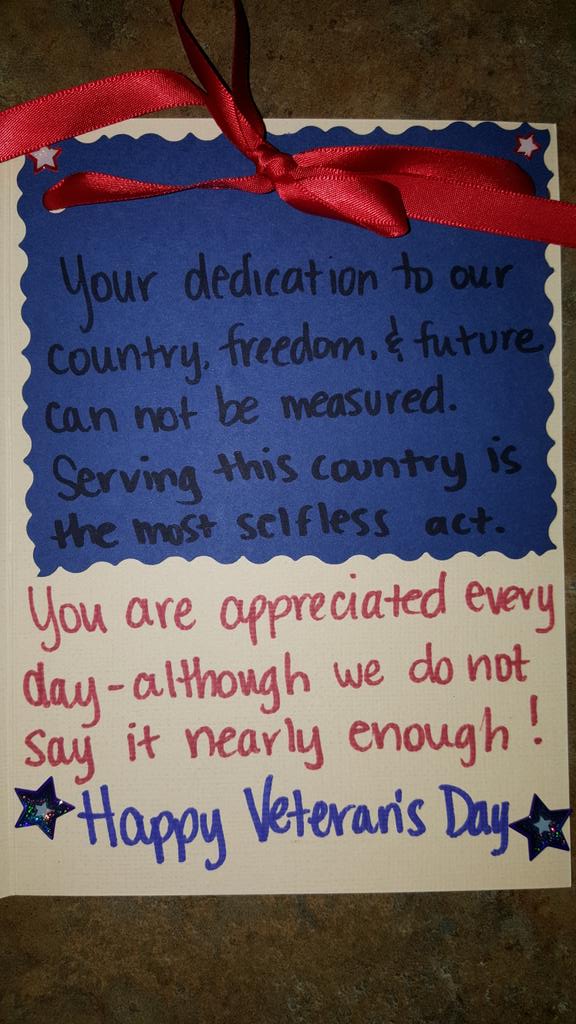 Your dedication to our
country, freedom, & future
can not be measured.
Serving this country is
the most selfless act.
You are appreciated every
day - although we do not
say it nearly enough!
Happy Veteran's Day